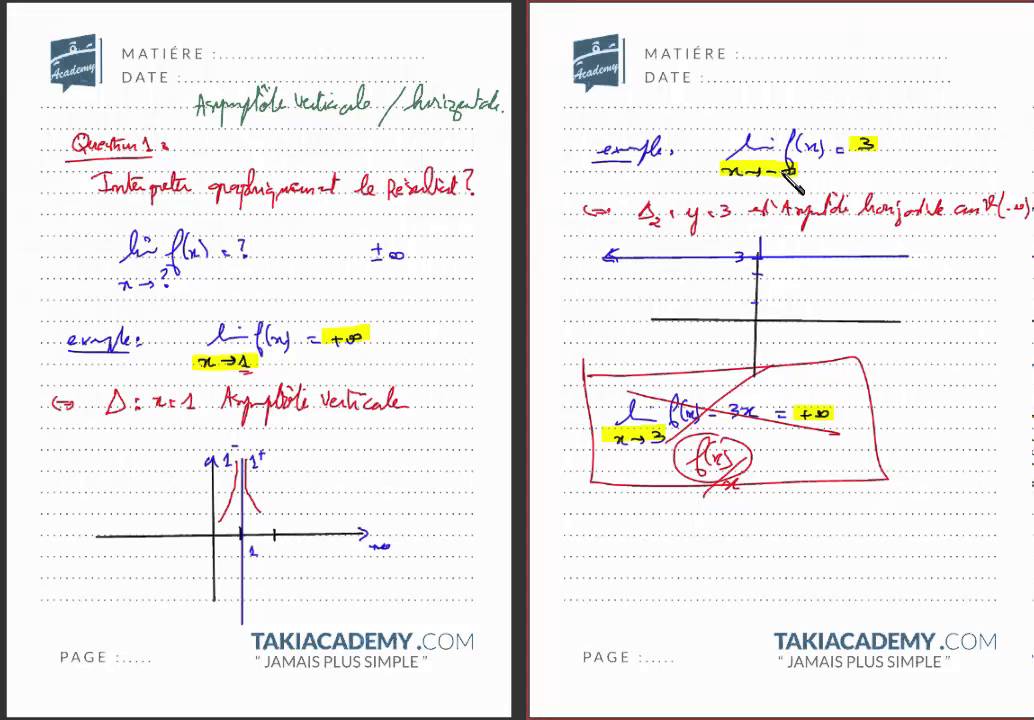 Academy
MATIÉRE :
DATE :
Asymptôte verticale / horizontale.
Question 1 :
Interpréter graphiquement le Résultat ?
lim f(x) = ?
x → ?
± ∞
exemple :
lim f(x) = +∞
x → 1
⇔ Δ : x = 1 Asymptôte verticale
1⁻ 1⁺
1
+∞
PAGE :.....
TAKIACADEMY.COM
“ JAMAIS PLUS SIMPLE ”
Academy
MATIÉRE :
DATE :
exemple.
lim f(x) = 3
x → -∞
⇔ Δ₂ : y = 3 est Asymptôte horizontale au V(-∞)
3
lim f(x) = 3x = +∞
x → 3
f(x)
x
PAGE :.....
TAKIACADEMY.COM
“ JAMAIS PLUS SIMPLE ”